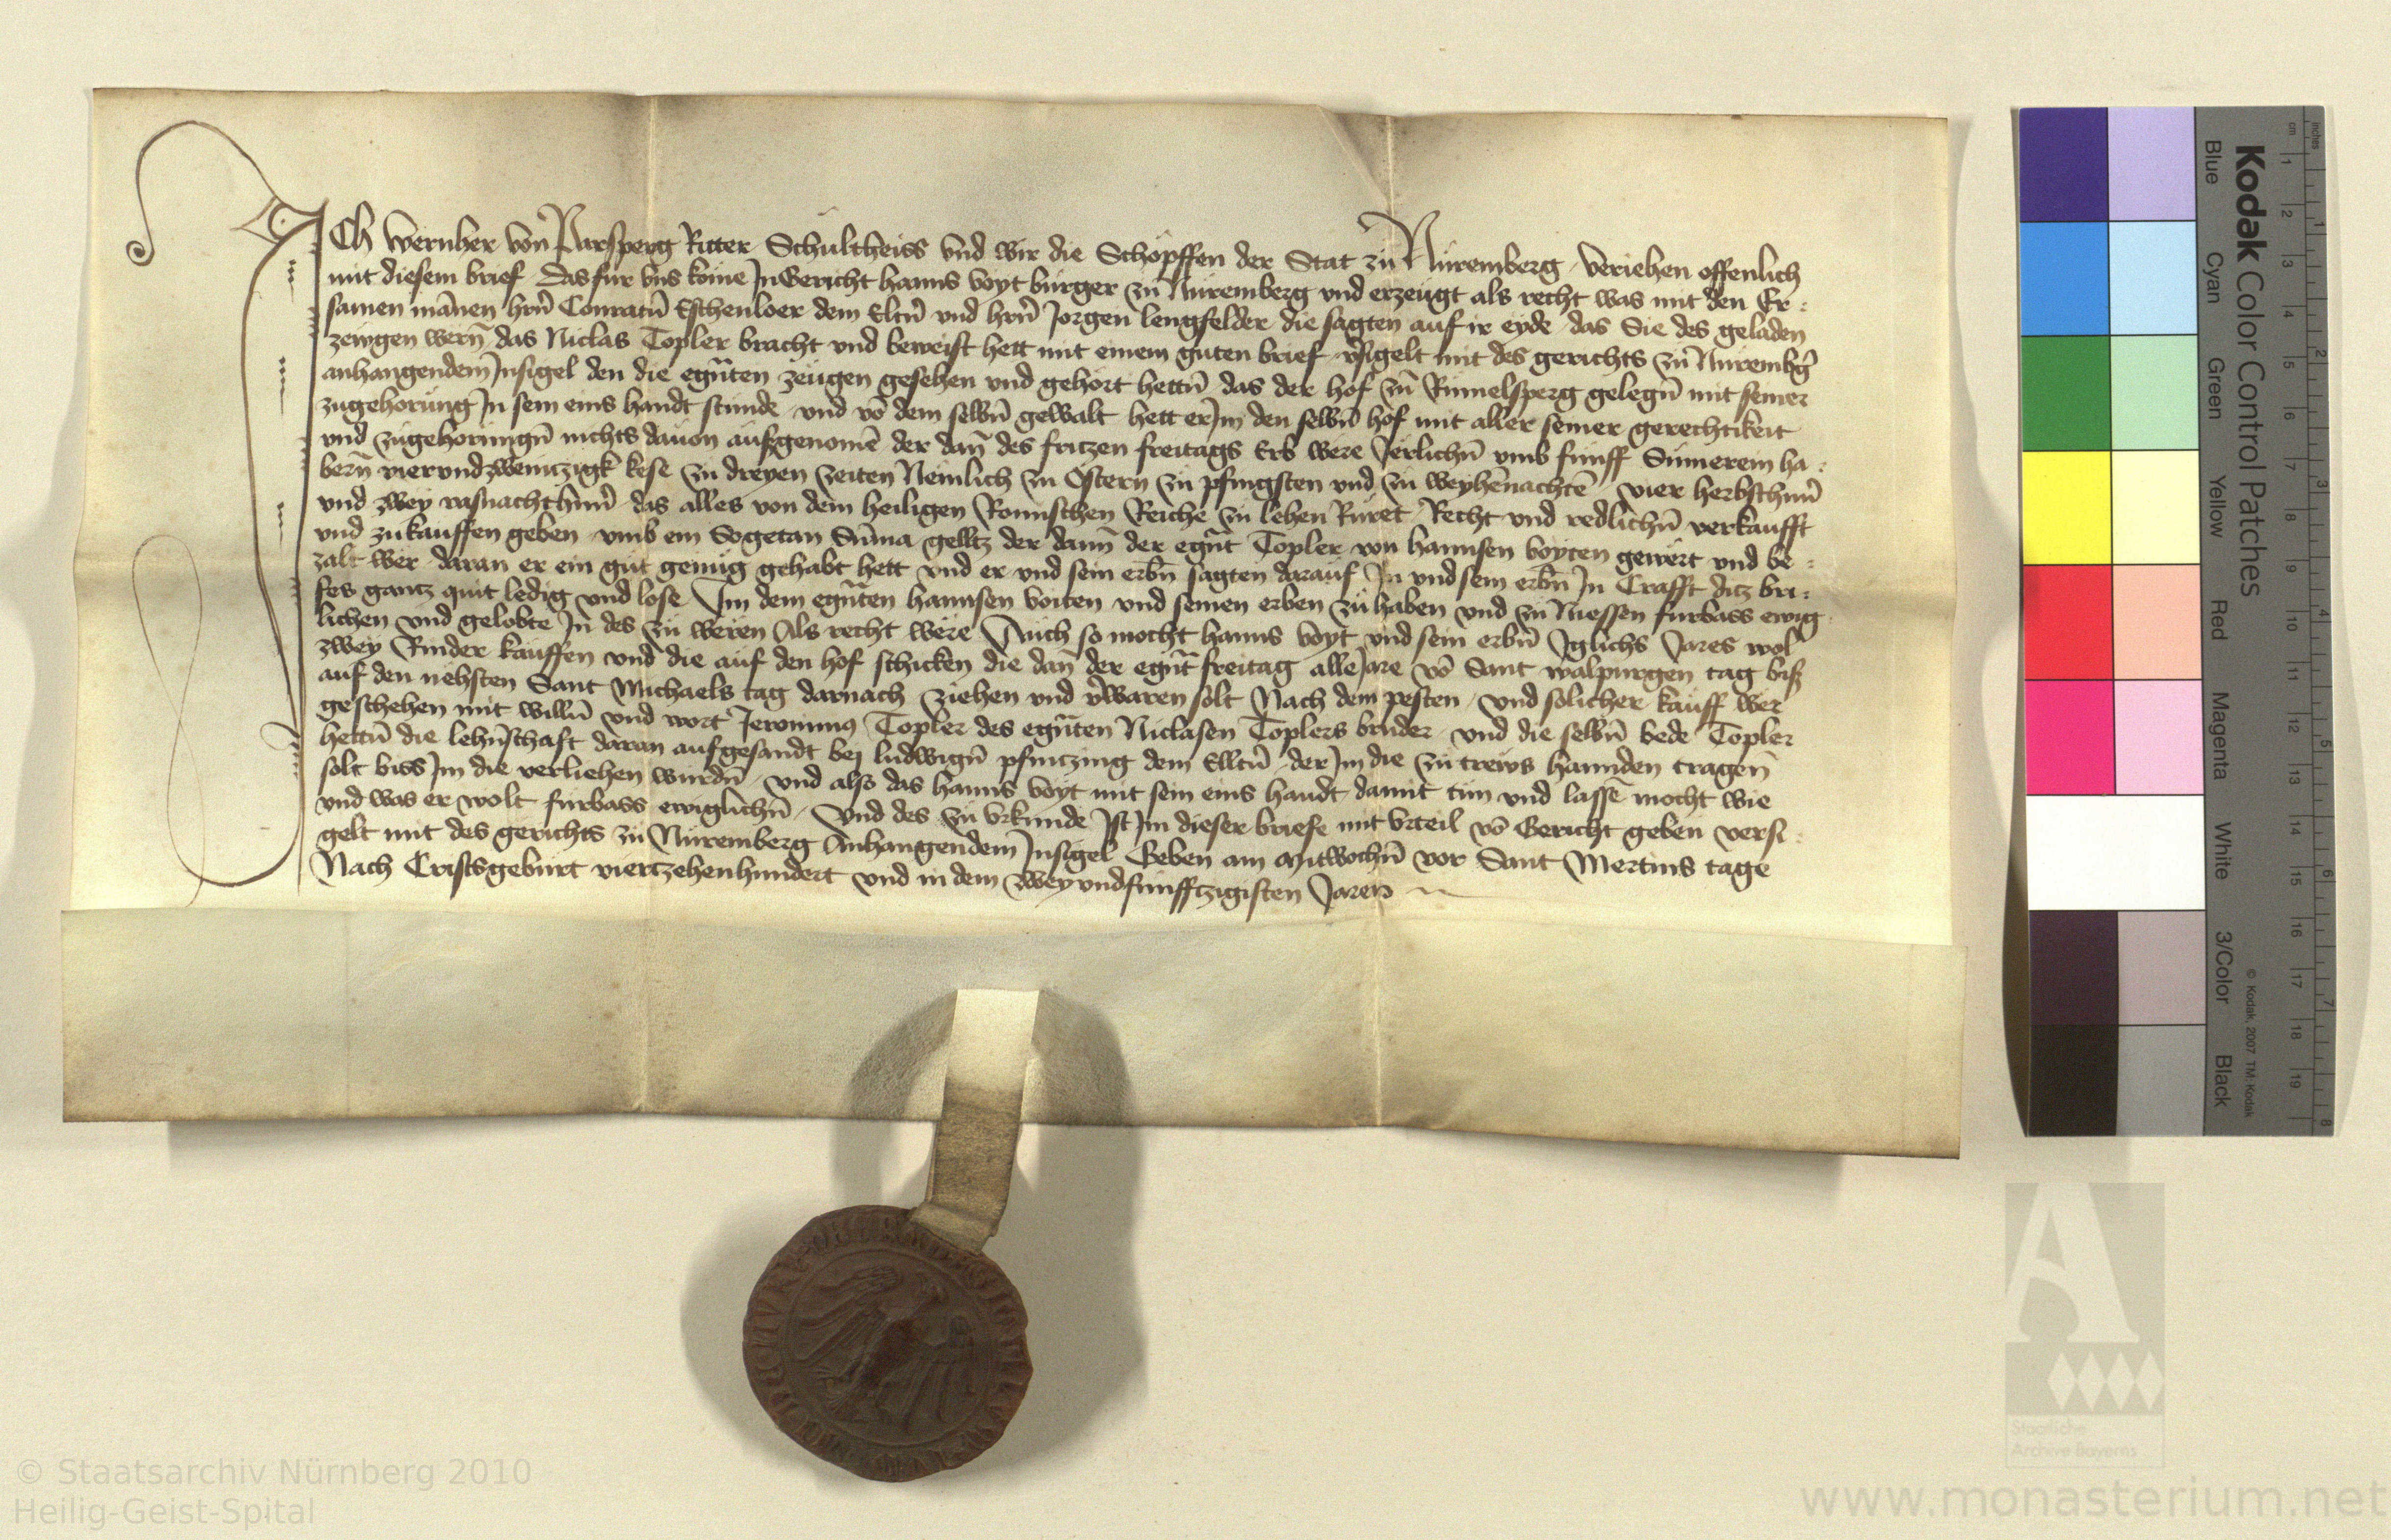 ICh Wernher von Parsperg Ritter Schultheiss vnd wir die Schöpffen der Stat zů Nůremberg veriehen offenlich
mit diesem brief das fůr vns kome In Gericht hanns voyt bůrger zů Nůremberg vnd erzeůgt als recht was mit den Er:
samen mannen hrn̄ Conratn̄ Eschenloer dem Eltn̄ vnd hrn̄ Jorgen lengfelder die sagten auf ir eyde das Sie des geladen
zeugen wern̄ das Niclas Topler bracht vnd beweist hett mit einem gůten brief v̄sigelt mit des gerichts zů Nurembḡ
anhangendem Insigel den die egn̄ten zeůgen gesehen vnd gehört hettn̄ das der hof zů Růmelsperg gelegn̄ mit seiner
zugehorung In sein eins handt stunde vnd vō dem selbn̄ gewalt hett er Im den selbn̄ hof mit aller seiner gerechtikeit
vnd zůgehorungn̄ nichts dauon aůfzgenomē der dan̄ des fritzen freitags Erb were Jerlichn̄ vmb fůnff Sůmerein ha:
bern̄ vierundzweintzigk kese zů dreyen zeiten Nemlich zů Ostern zů pfingsten vnd zů weyhēnachtē vier herbsthůn̄
vnd zwey vasnachthůn̄ das alles von dem heiligen Romischen Reiche zů lehen Růret Recht vnd redlichn̄ verkaufft
vnd zůkauffen geben vmb ein Sogetan Sūma gelltz der dann der egn̄t Topler von hannsen voyten gewert vnd be:
zalt wer daran er ein gůt genůg gehabt hett vnd er vnd sein erbn̄ sagten darauf In vnd sein erbn̄ In Crafft ditz bri:
fes gantz quit ledig vnd lose Im dem egn̄ten hannsen voiten vnd seinen erben zů haben vnd zů Niessen furbass ewig
lichen vnd gelobte In des zů weren Als recht were Aůch so mocht hanns voyt vnd sein erbn̄ Iglichs Jares wol
zwey Rinder kaůffen vnd die aůf den hof schicken die dan̄ der egn̄t freitag alle Jare vō Sant walpurgen tag bisz
auf den nehsten Sant Michaels tag darnach ziehen vnd v̄waren solt Nach dem pesten vnd solicher kauff wer
geschehen mit willn̄ vnd wort Jeronimus Topler des egn̄ten Niclasen Toplers brůder vnd die selbn̄ bede Topler
hettn̄ die lehn̄schaft daran aufgesandt bej ludwign̄ pfintzing dem Elltn̄ der Im die zů trews hannden tragen
solt biss Im die verliehen wurdn̄ vnd also das hanns voyt mit sein eins handt damit tun vnd lassē mocht wie
vnd was er wolt furbass ewiglichn̄ Vnd des zů Vrkunde Ist Im dieser briefe mit Vrteil vō Gericht geben versi
gelt mit des gerichts zů Nůremberg Anhangendem Insigel Geben am Mitwochn̄ vor Sant Mertins tage
Nach Cristsgebůrt viertzehenhundert vnd in dem zweyvndfůnfftzigisten Jaren
Kodak Color Control Patches
Blue Cyan Green Yellow Red Magenta White 3/Color Black
© Kodak, 2007 TM: Kodak
inches 1 2 3 4 5 6 7 8
cm 1 2 3 4 5 6 7 8 9 10 11 12 13 14 15 16 17 18 19
A
Staatliche
Archive Bayerns
© Staatsarchiv Nürnberg 2010
Heilig-Geist-Spital
www.monasterium.net